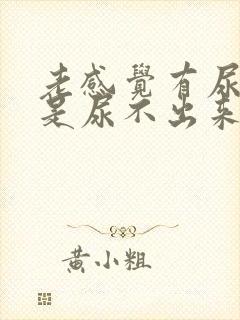 老感覺有尿
是尿不出來
黃小粗